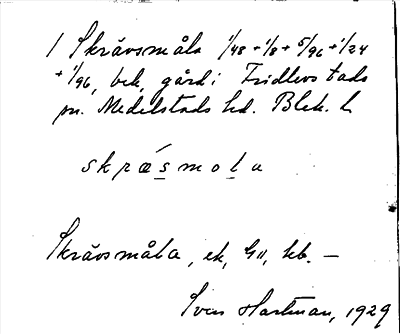 1 Skrävsmåla 1/48 + 1/8 + 5/96 + 1/24
+ 1/96, bek, gård i Fridlevstads
sn. Medelstads hd. Blek. l.
skræ´smola
Skrävsmåla, ek, G11, kb. —
Sven Hartman, 1929